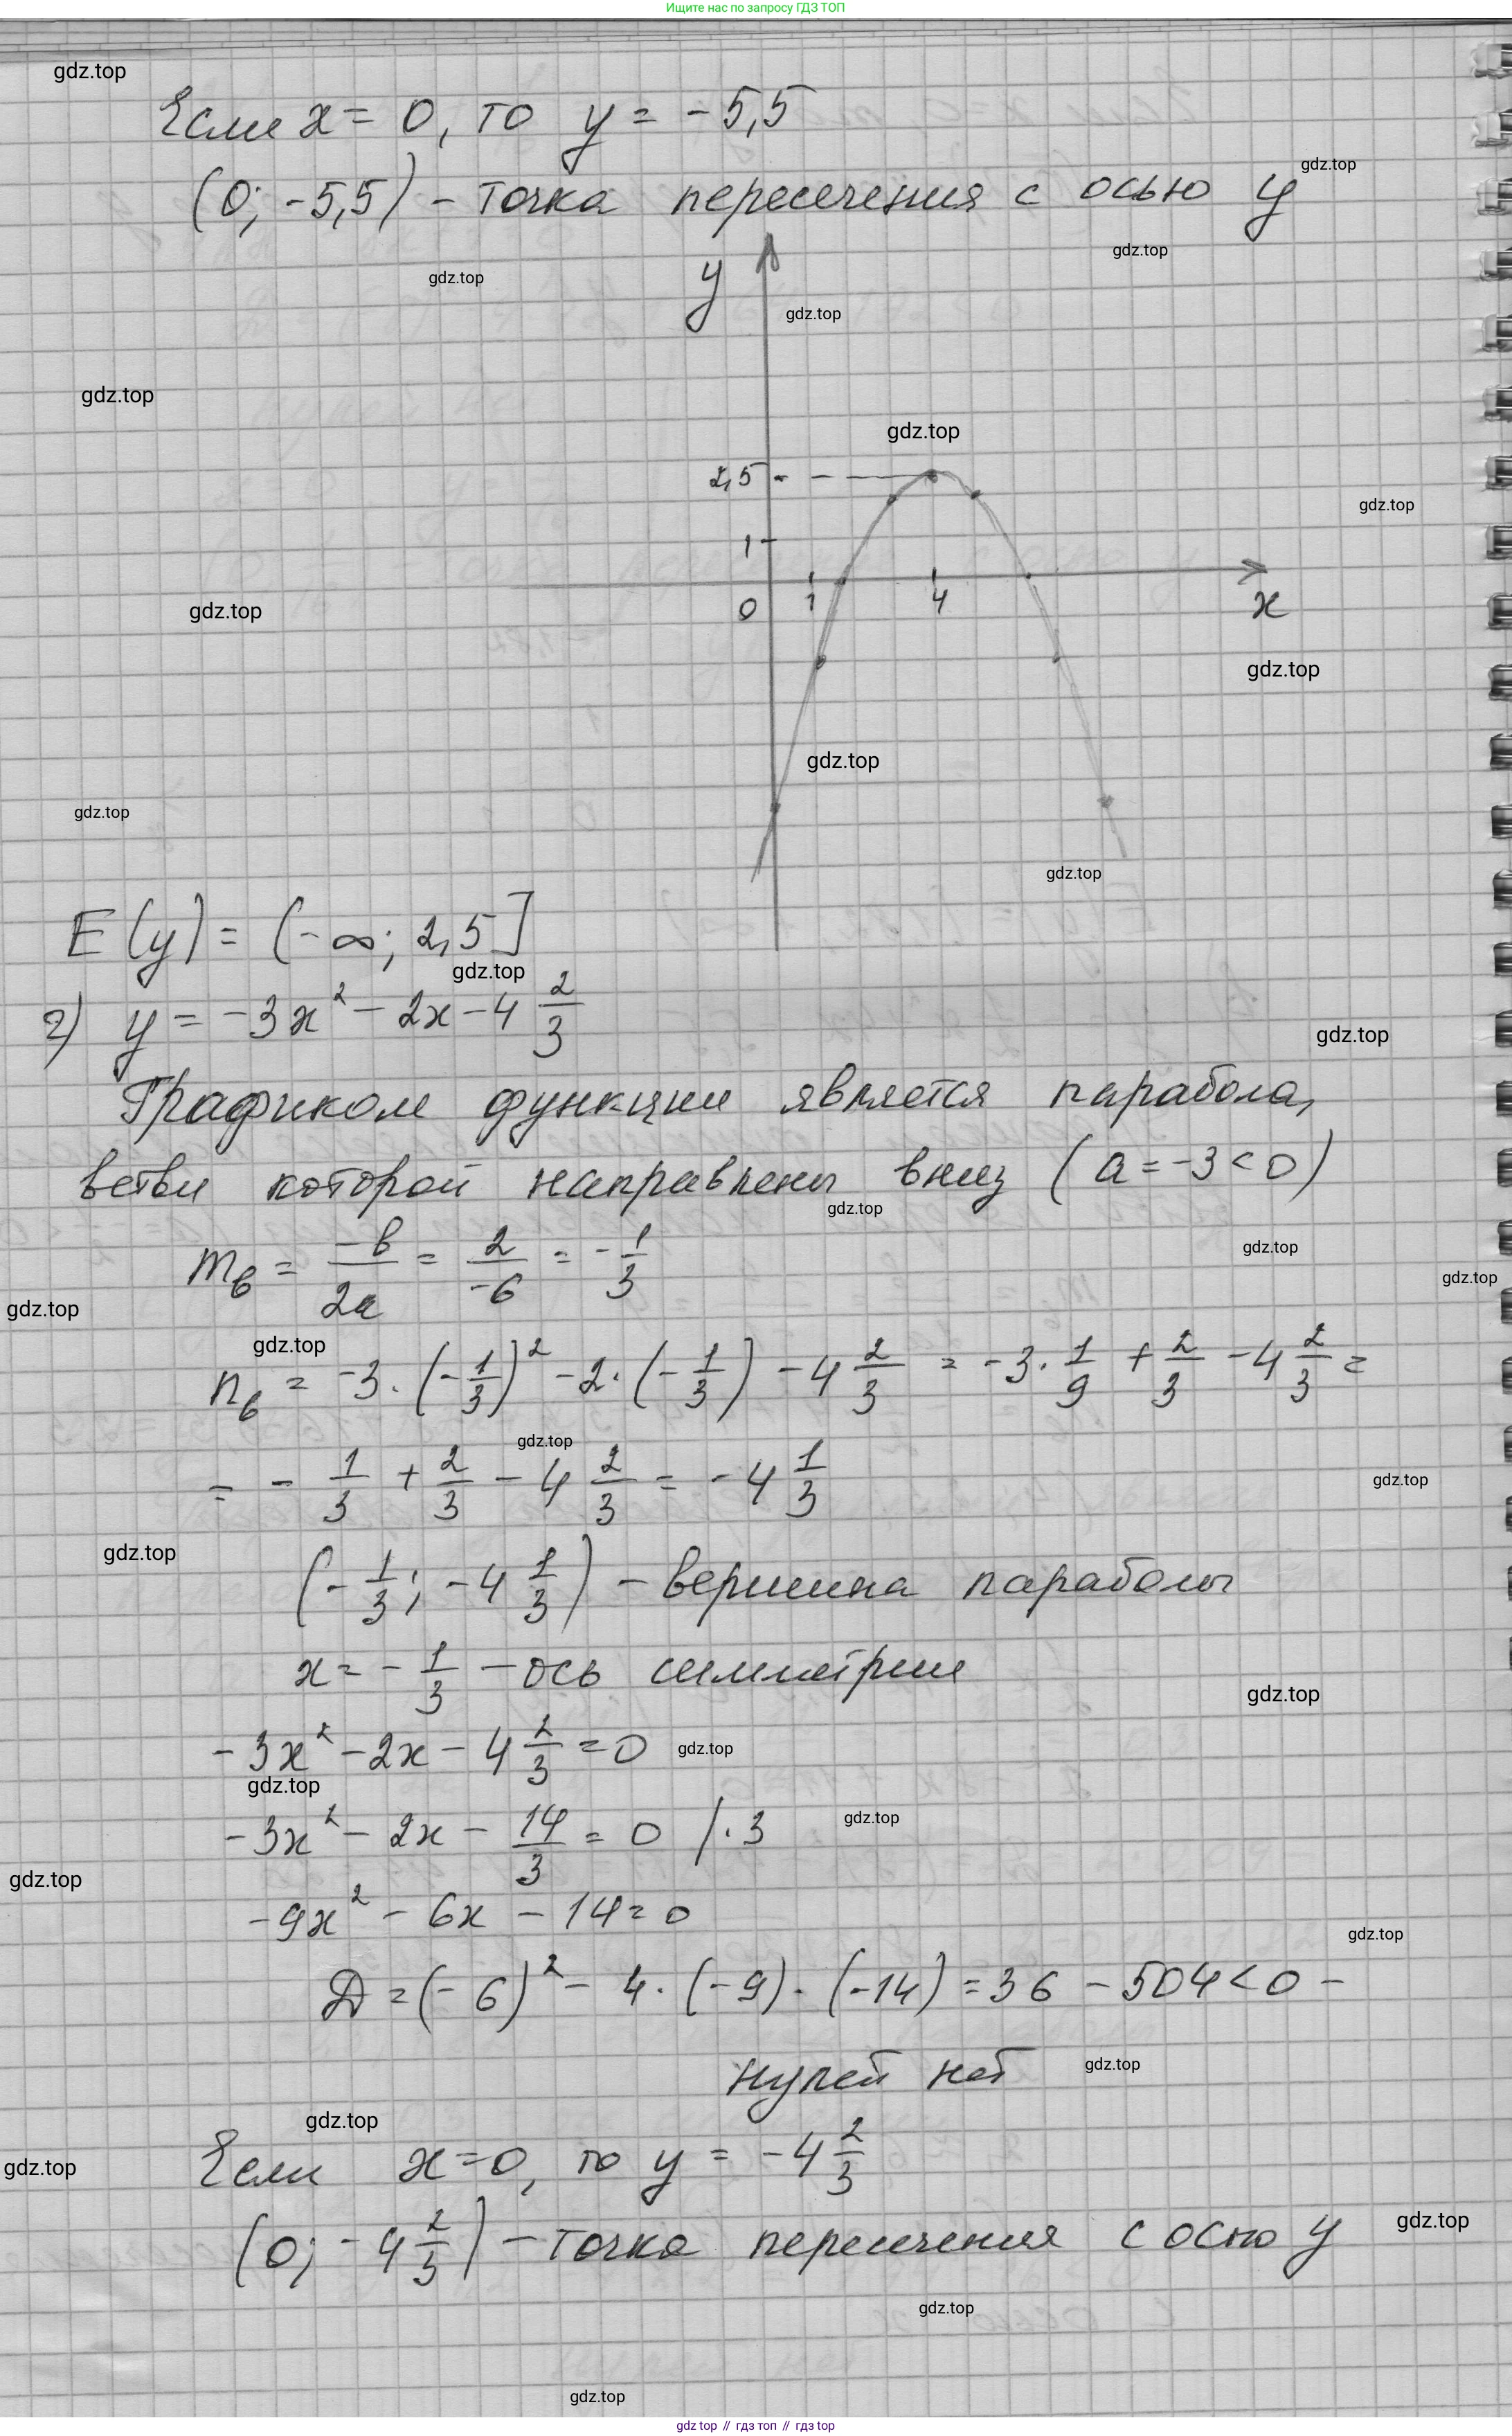 Ищите нас по запросу ГДЗ ТОП
gdz.top
Если x = 0, то y = -5,5
gdz.top
(0; -5,5) - точка пересечения с осью y
gdz.top
gdz.top
y
gdz.top
gdz.top
gdz.top
2,5
gdz.top
1
0 1 4 x
gdz.top
gdz.top
gdz.top
gdz.top
gdz.top
E(y) = (-∞; 2,5]
gdz.top
г) y = -3x² - 2x - 4 2/3
gdz.top
Графиком функции является парабола,
ветви которой направлены вниз (a = -3 < 0)
gdz.top
m_в = -b/2a = 2/-6 = -1/3
gdz.top
gdz.top
gdz.top
gdz.top
n_в = -3·(-1/3)² - 2·(-1/3) - 4 2/3 = -3·1/9 + 2/3 - 4 2/3 =
gdz.top
= -1/3 + 2/3 - 4 2/3 = -4 1/3
gdz.top
gdz.top
(-1/3; -4 1/3) - вершина параболы
x = -1/3 - ось симметрии
gdz.top
-3x² - 2x - 4 2/3 = 0
gdz.top
gdz.top
-3x² - 2x - 14/3 = 0 /·3
gdz.top
gdz.top
-9x² - 6x - 14 = 0
gdz.top
D = (-6)² - 4·(-9)·(-14) = 36 - 504 < 0 -
нулей нет
gdz.top
gdz.top
Если x = 0, то y = -4 2/3
gdz.top
(0; -4 2/3) - точка пересечения с осью y
gdz.top
gdz.top
gdz.top
gdz top // гдз топ // gdz top